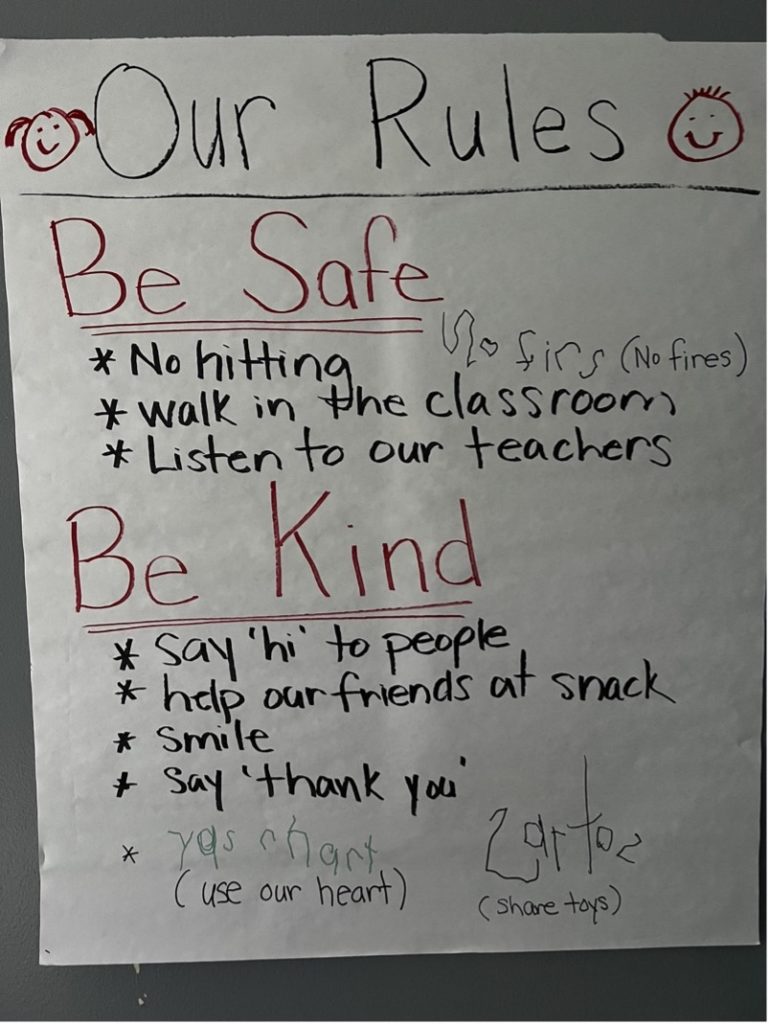 Our Rules
Be Safe
No firs (No fires)
* No hitting
* walk in the classroom
* Listen to our teachers
Be Kind
* say 'hi' to people
* help our friends at snack
* smile
* say 'thank you'
* yas chart
(use our heart)
(share toys)